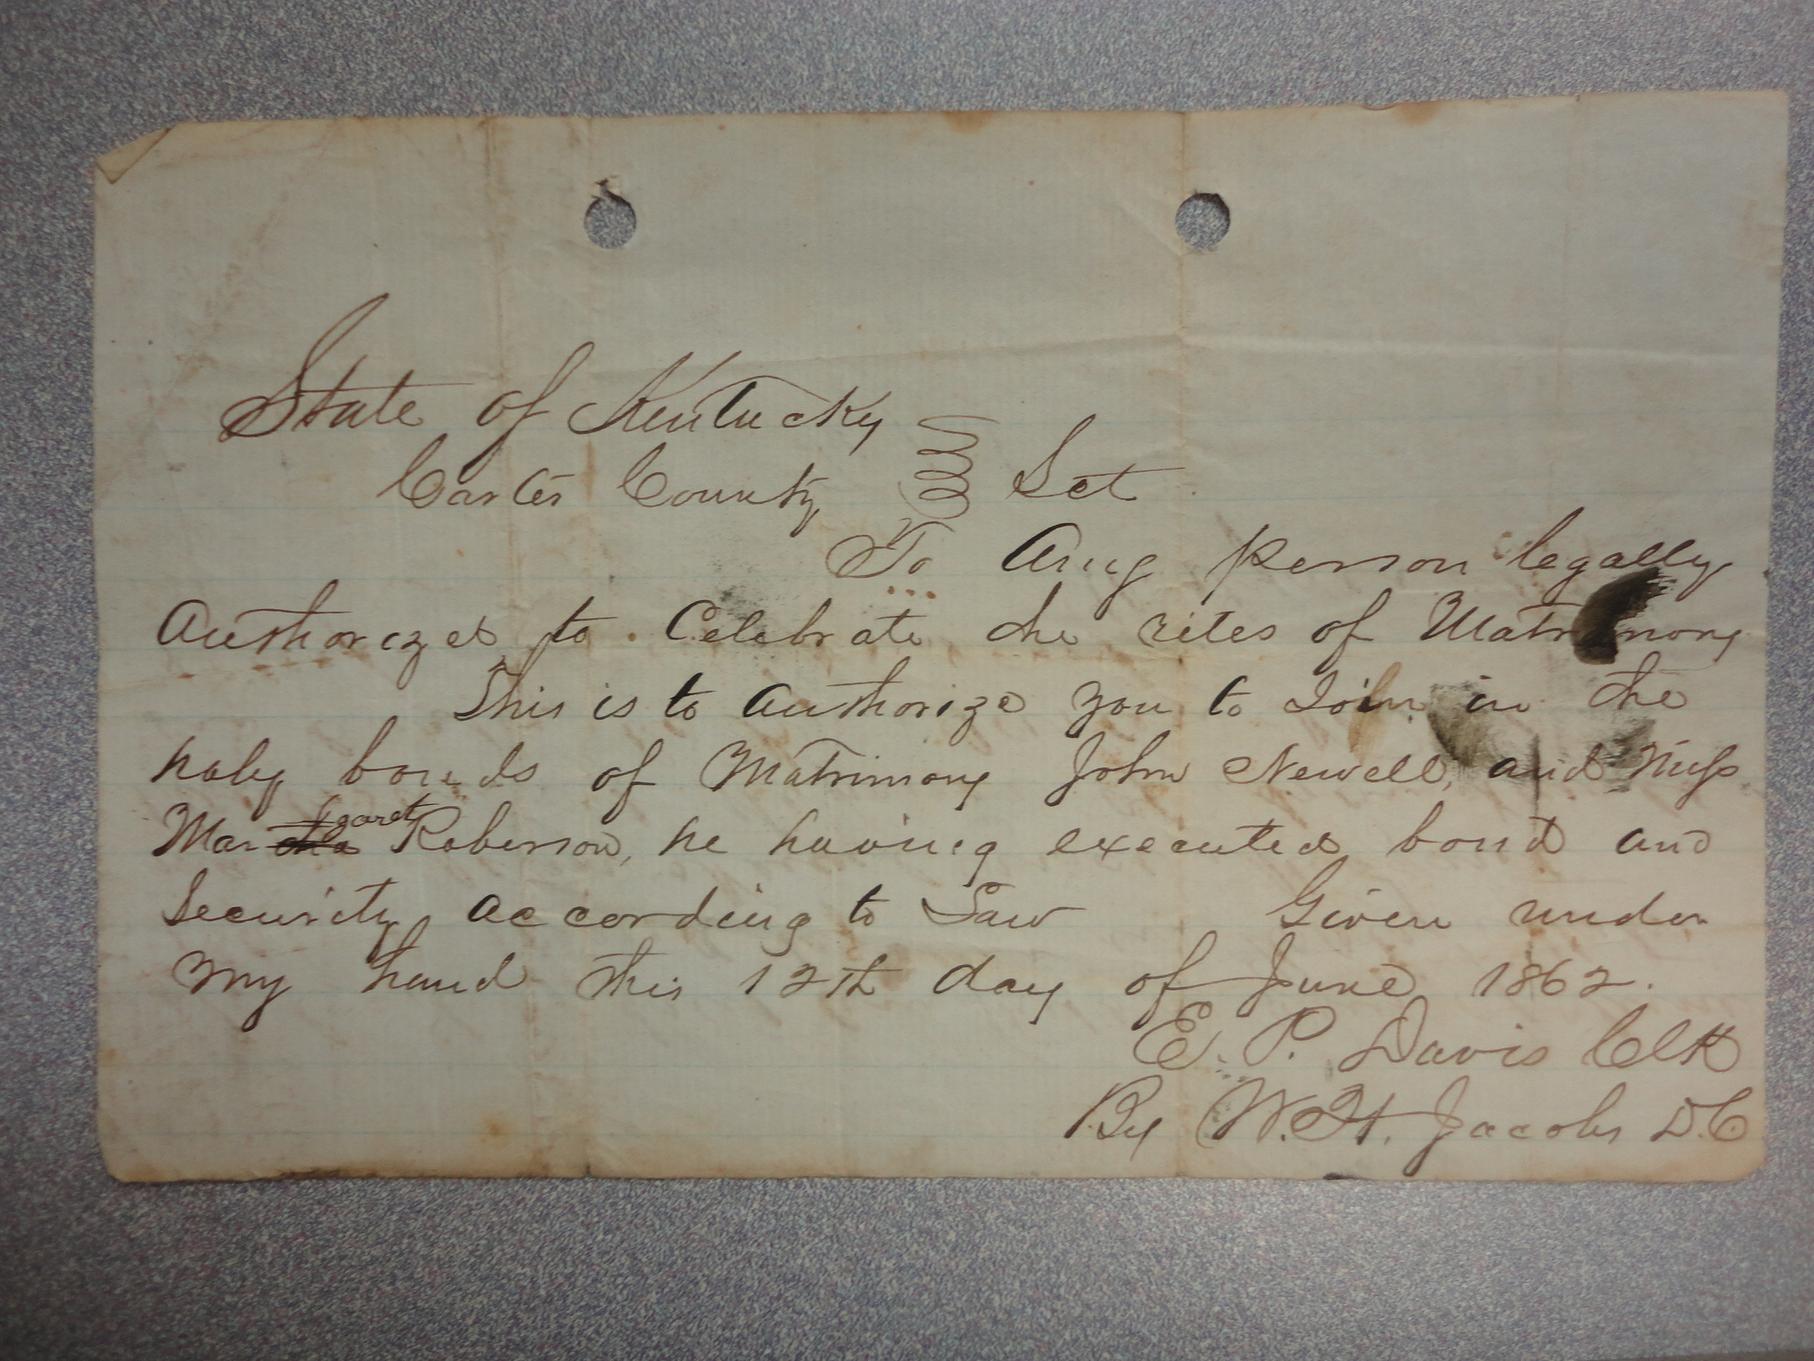 State of Kentucky
Carter County Sct
To Any person legally
Authorized to Celebrate the rites of Matrimony
This is to authorize you to Join in the
holy bonds of Matrimony John Newell, and Miss
Margaret Roberson, he having executed bond and
Security according to Law Given under
my hand this 12th day of June 1862.
E. P. Davis Clk
By W. H. Jacobs D.C